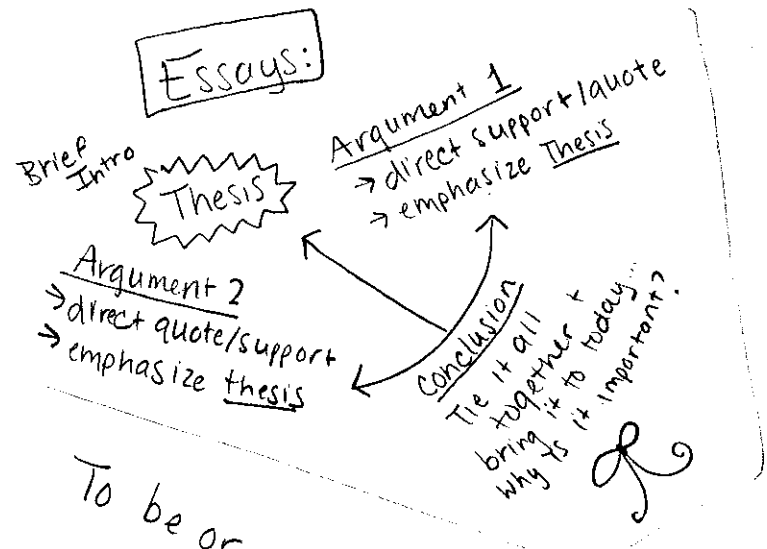 Essays:
Brief
Intro
Thesis
Argument 1
→ direct support/quote
→ emphasize Thesis
Argument 2
→ direct quote/support
→ emphasize thesis
Conclusion
Tie it all
together +
bring it to today...
Why is it important?
To be or